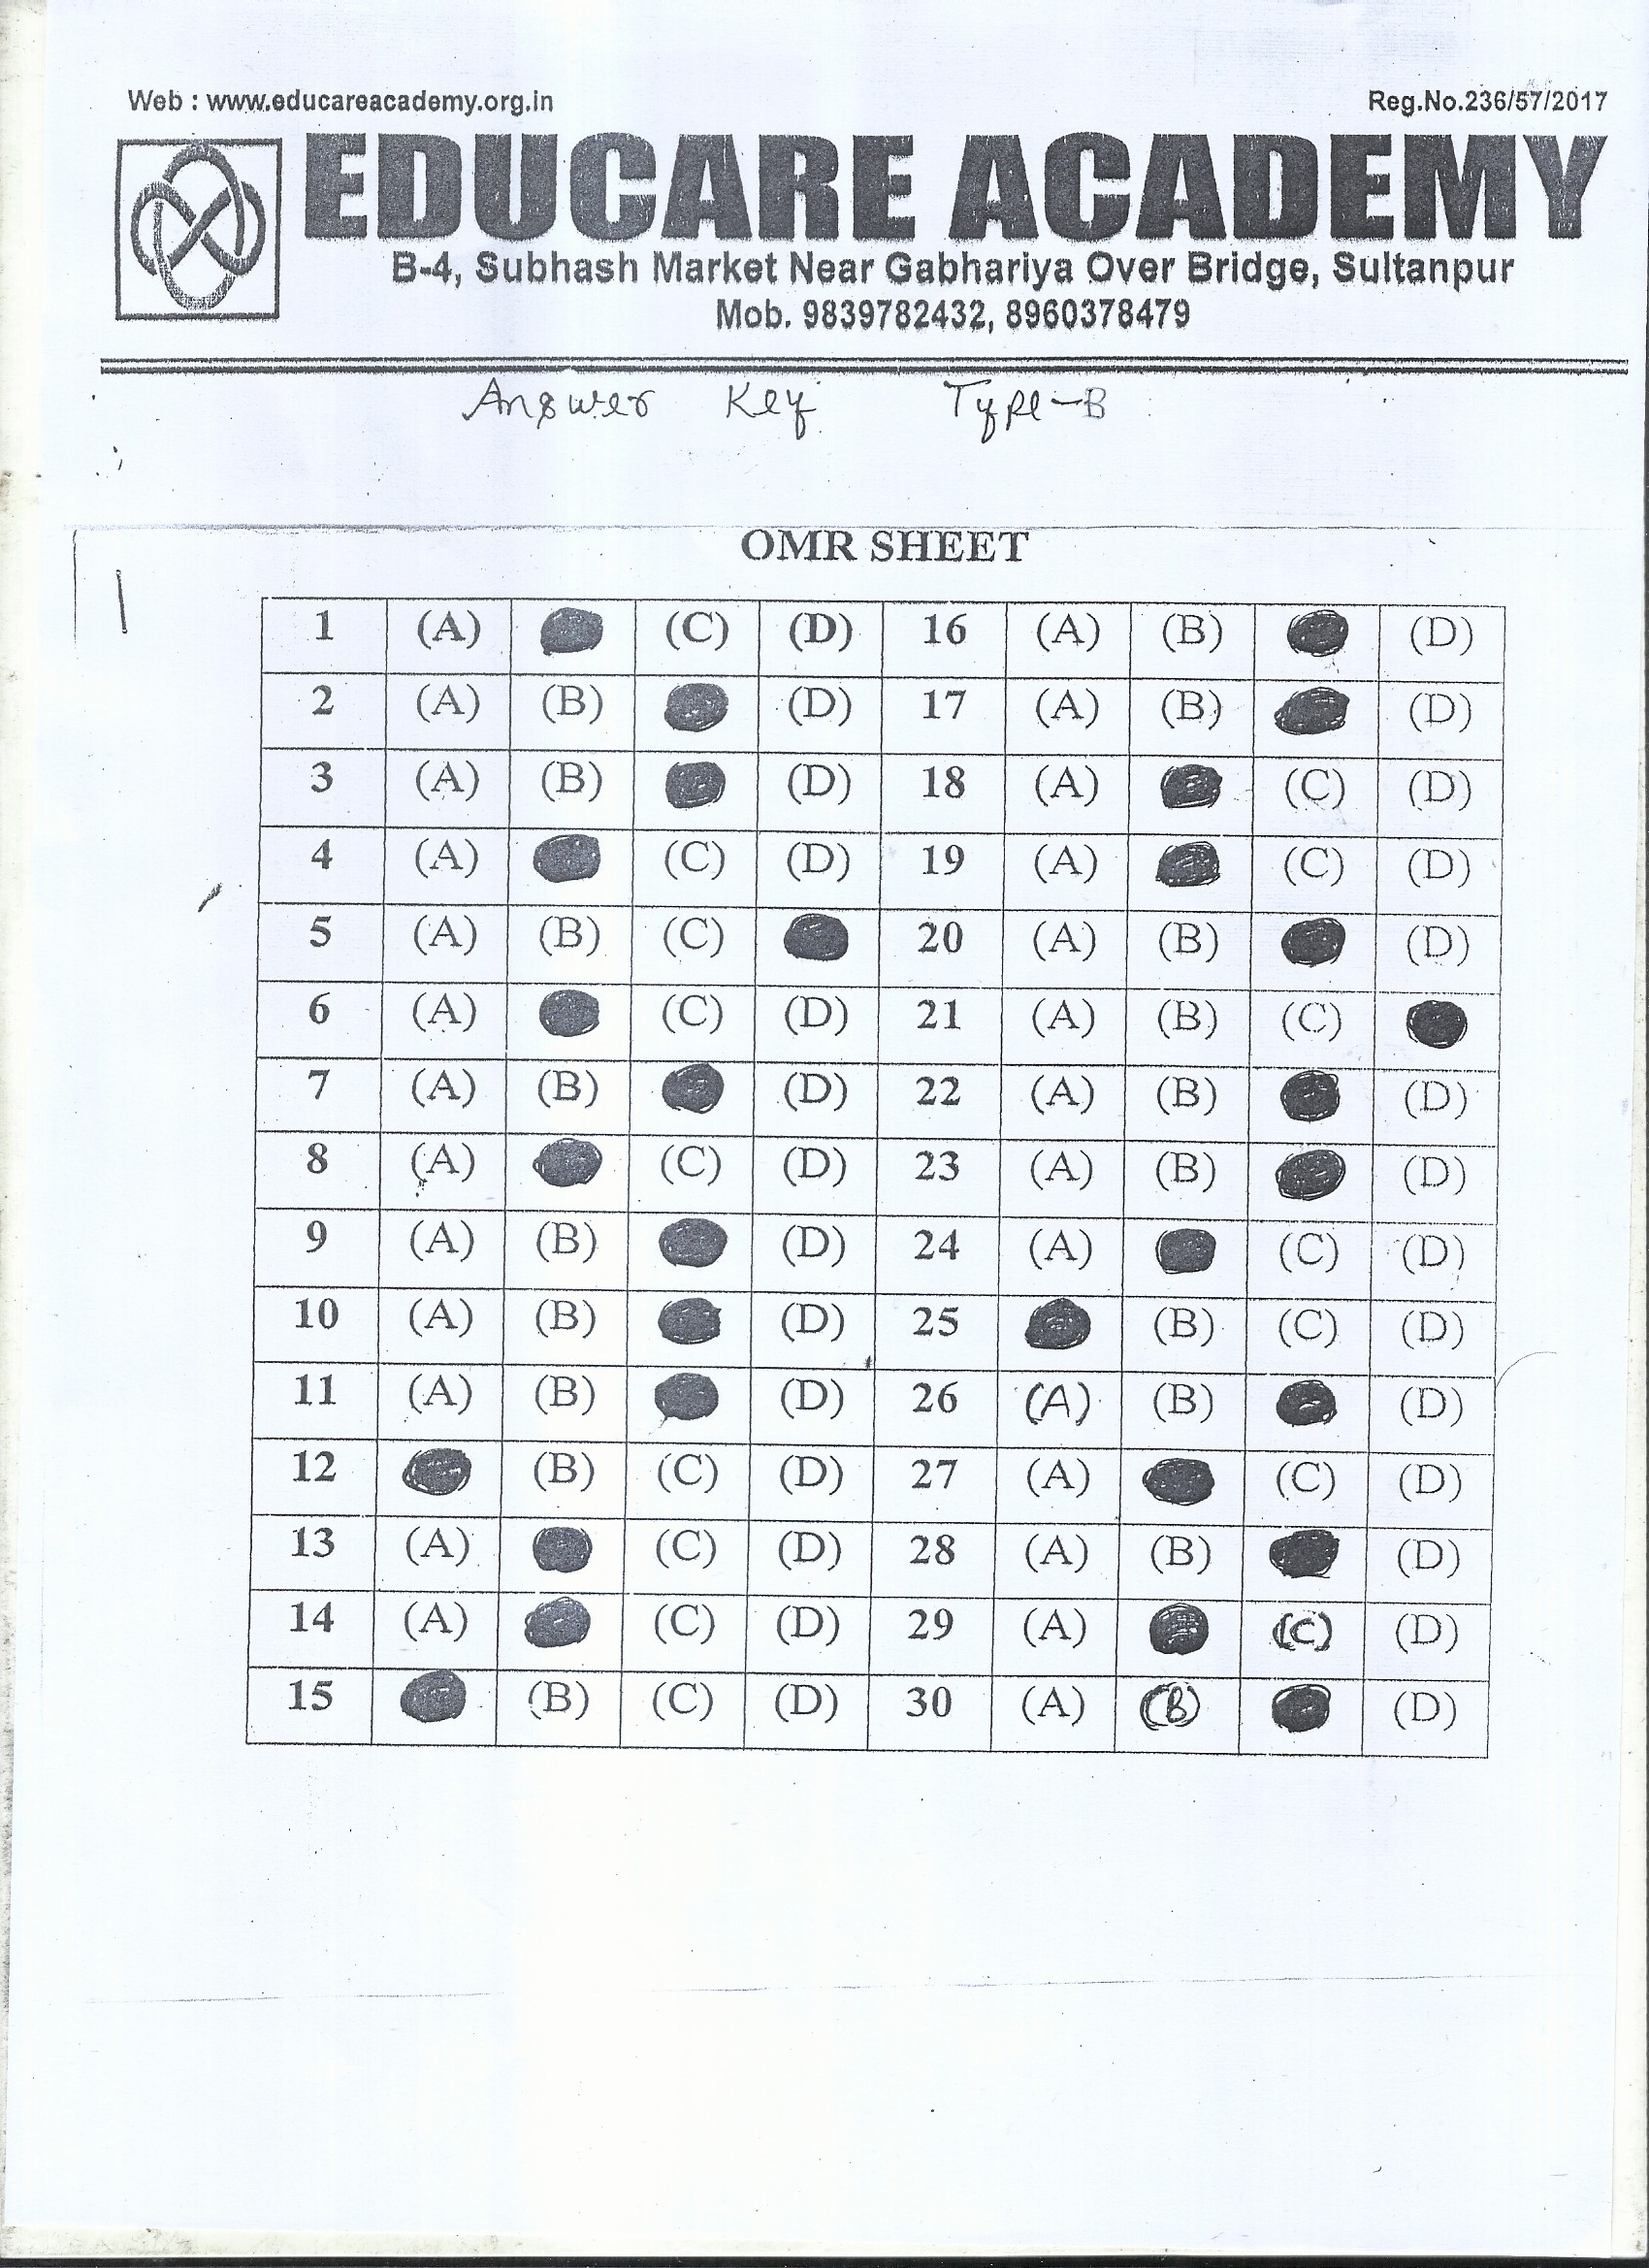 Web : www.educareacademy.org.in Reg.No.236/57/2017
EDUCARE ACADEMY
B-4, Subhash Market Near Gabhariya Over Bridge, Sultanpur
Mob. 9839782432, 8960378479
Answer Key Type-B
OMR SHEET
1 (A) (C) (D) 16 (A) (B) (D)
2 (A) (B) (D) 17 (A) (B) (D)
3 (A) (B) (D) 18 (A) (C) (D)
4 (A) (C) (D) 19 (A) (C) (D)
5 (A) (B) (C) 20 (A) (B) (D)
6 (A) (C) (D) 21 (A) (B) (C)
7 (A) (B) (D) 22 (A) (B) (D)
8 (A) (C) (D) 23 (A) (B) (D)
9 (A) (B) (D) 24 (A) (C) (D)
10 (A) (B) (D) 25 (B) (C) (D)
11 (A) (B) (D) 26 (A) (B) (D)
12 (B) (C) (D) 27 (A) (C) (D)
13 (A) (C) (D) 28 (A) (B) (D)
14 (A) (C) (D) 29 (A) (C) (D)
15 (B) (C) (D) 30 (A) (B) (D)